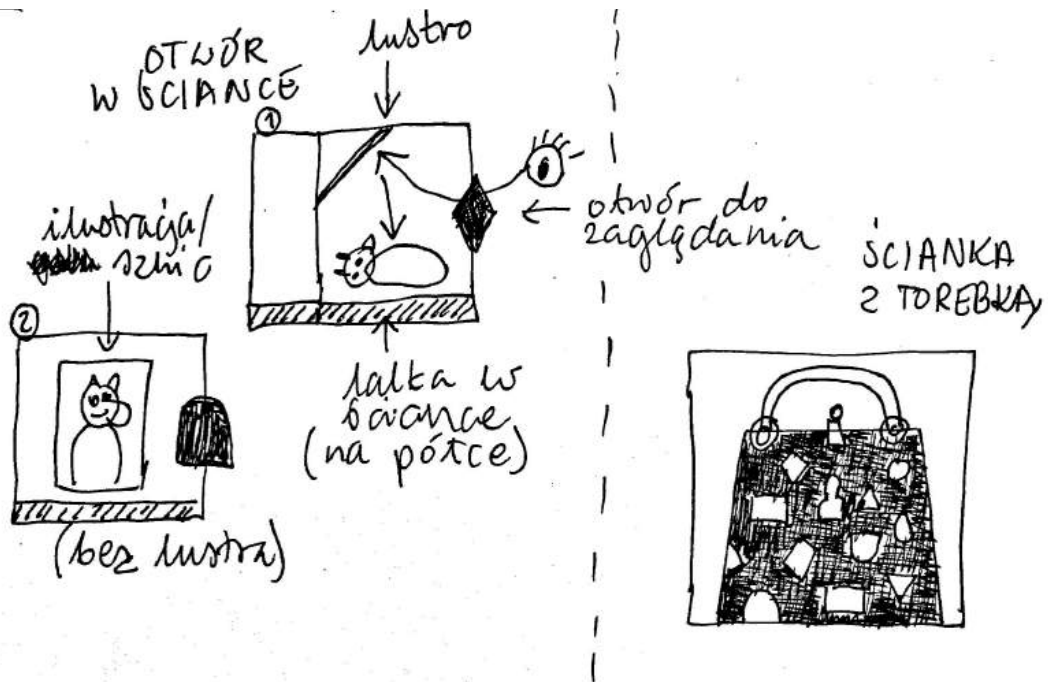 OTWÓR
W ŚCIANCE
lustro
①
otwór do
zaglądania
ilustracja/
szkic
②
lalka w
ściance
(na półce)
(bez lustra)
ŚCIANKA
Z TOREBKĄ